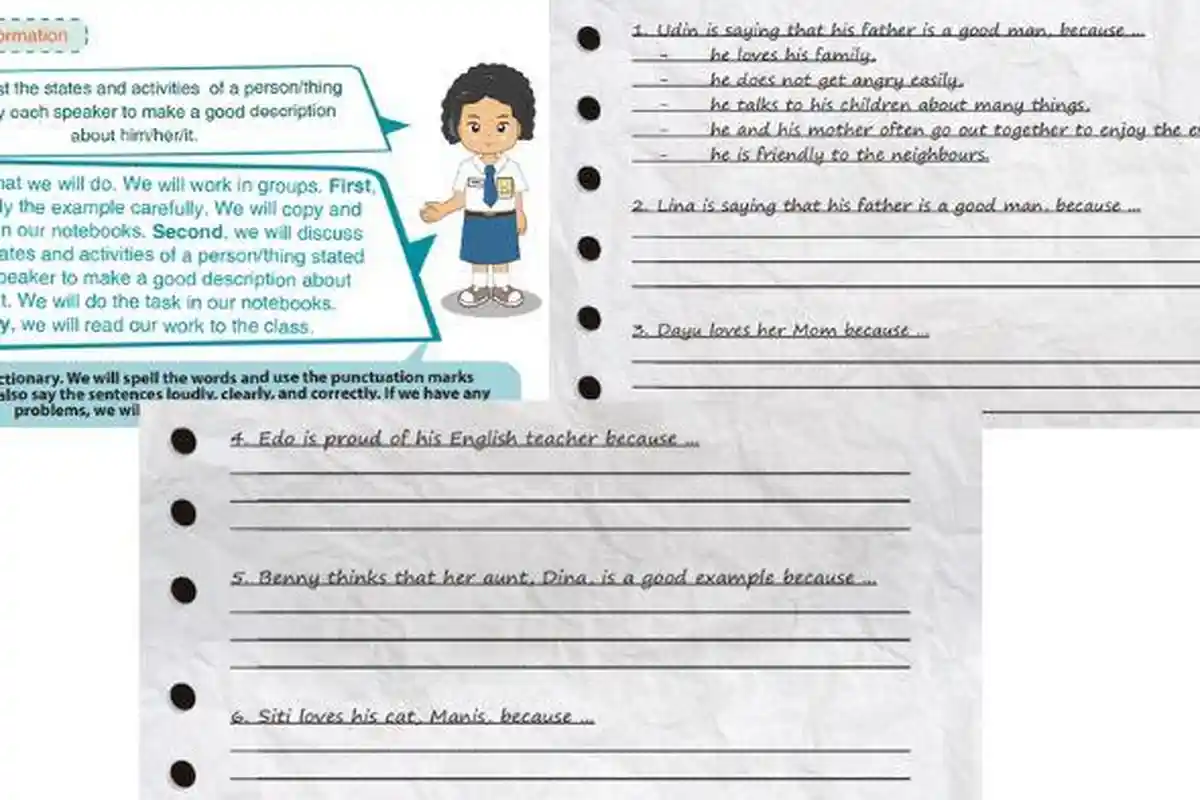 ormation
st the states and activities of a person/thing
y each speaker to make a good description
about him/her/it.
hat we will do. We will work in groups. First,
ly the example carefully. We will copy and
n our notebooks. Second, we will discuss
ates and activities of a person/thing stated
peaker to make a good description about
t. We will do the task in our notebooks.
y, we will read our work to the class.
ctionary. We will spell the words and use the punctuation marks
also say the sentences loudly, clearly, and correctly. If we have any
problems, we wil
1. Udin is saying that his father is a good man, because ...
- he loves his family.
- he does not get angry easily.
- he talks to his children about many things.
- he and his mother often go out together to enjoy the e
- he is friendly to the neighbours.
2. Lina is saying that his father is a good man, because ...
3. Dayu loves her Mom because ...
4. Edo is proud of his English teacher because ...
5. Benny thinks that her aunt, Dina, is a good example because ...
6. Siti loves his cat, Manis, because ...